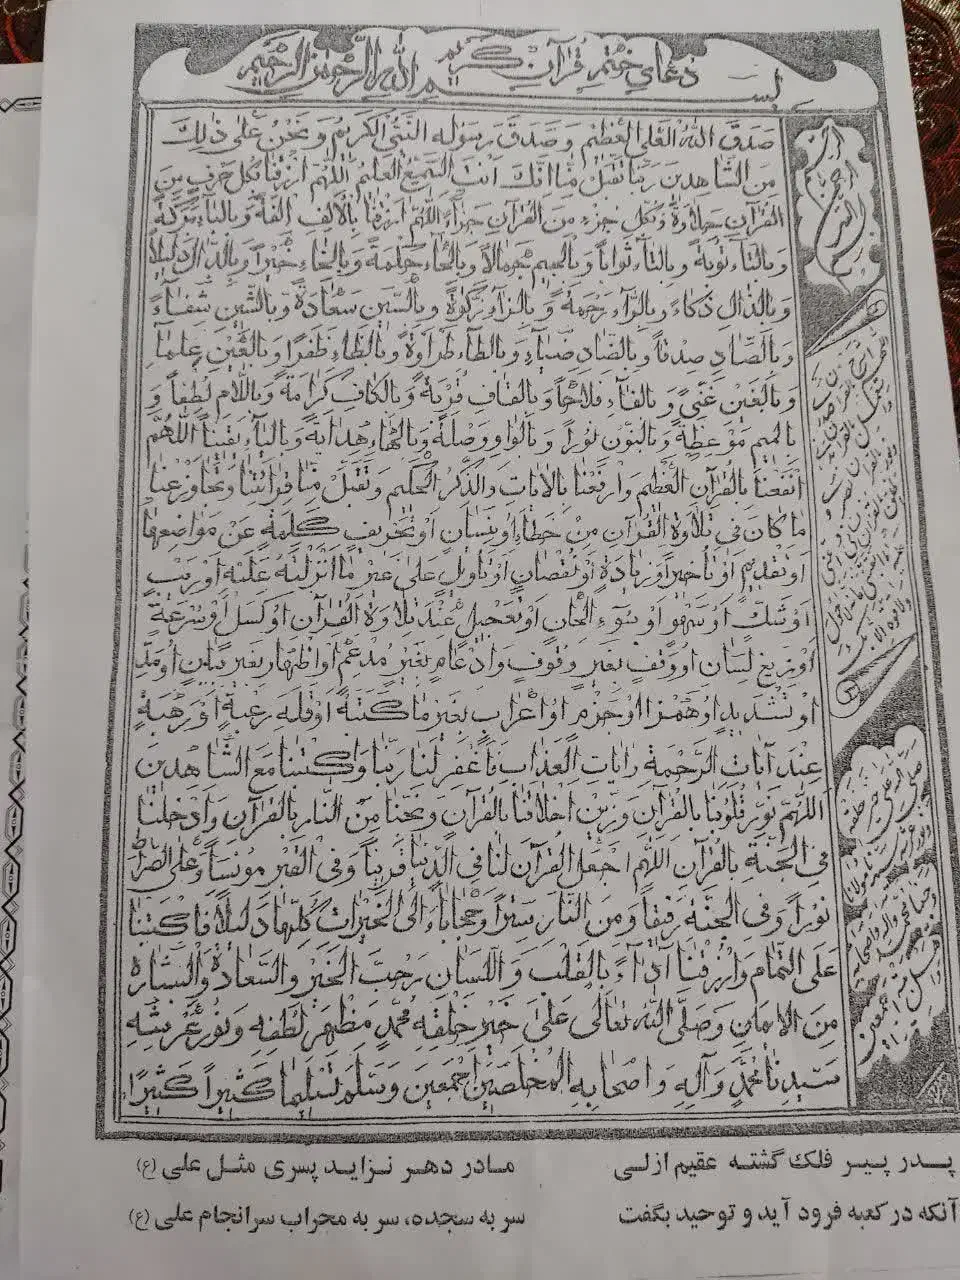 دعای ختم قرآن کریم
بسم الله الرحمن الرحیم
صَدَقَ اللهُ العَلِیُّ العَظیٖمُ وَ صَدَقَ رَسُولُهُ النَّبِیُّ الکَریٖمُ وَ نَحْنُ عَلیٰ ذٰلِکَ
مِنَ الشّاهِدیٖنَ رَبَّنا تَقَبَّلْ مِنّا اِنَّکَ اَنْتَ السَّمیٖعُ العَلیٖمُ اَللّٰهُمَّ ارْزُقْنا بِکُلِّ حَرْفٍ مِنَ
القُرْآنِ حَلاوَةً وَ بِکُلِّ جُزْءٍ مِنَ القُرْآنِ جَزاءً اَللّٰهُمَّ ارْزُقْنا بِالْاَلِفِ اُلْفَةً وَ بِالْباءِ بَرَکَةً
وَ بِالتّاءِ تَوْبَةً وَ بِالثّاءِ ثَواباً وَ بِالجیٖمِ جَمالاً وَ بِالْحاءِ حِکْمَةً وَ بِالْخاءِ خَیْراً وَ بِالدّالِ دَلیٖلاً
وَ بِالذّالِ ذَکاءً وَ بِالرّاءِ رَحْمَةً وَ بِالزّاءِ زَکوٰةً وَ بِالسّیٖنِ سَعادَةً وَ بِالشّیٖنِ شِفاءً
وَ بِالصّادِ صِدْقاً وَ بِالضّادِ ضِیاءً وَ بِالطّاءِ طَراوَةً وَ بِالظّاءِ ظَفَراً وَ بِالْعَیْنِ عِلْماً
وَ بِالْغَیْنِ غِنیً وَ بِالْفاءِ فَلاحاً وَ بِالْقافِ قُرْبَةً وَ بِالْکافِ کَرامَةً وَ بِاللّامِ لُطْفاً وَ
بِالْمیٖمِ مَوْعِظَةً وَ بِالنُّونِ نُوراً وَ بِالْواوِ وَصْلَةً وَ بِالْهاءِ هِدایَةً وَ بِالْیاءِ یَقیٖناً اَللّٰهُمَّ
انْفَعْنا بِالْقُرْآنِ الْعَظیٖمِ وَ ارْفَعْنا بِالْآیاتِ وَ الذِّکْرِ الْحَکیٖمِ وَ تَقَبَّلْ مِنّا قِرائَتَنا وَ تَجاوَزْ عَنّا
ما کانَ فیٖ تِلاوَةِ الْقُرْآنِ مِنْ خَطاءٍ اَوْ نِسْیانٍ اَوْ تَحْریٖفِ کَلِمَةٍ عَنْ مَواضِعِها
اَوْ تَقْدیٖمٍ اَوْ تَأْخیٖرٍ اَوْ زِیادَةٍ اَوْ نُقْصانٍ اَوْ تَأْویٖلٍ عَلیٰ غَیْرِ ما اَنْزَلْتَهُ عَلَیْهِ اَوْ رَیْبٍ
اَوْ شَکٍّ اَوْ سَهْوٍ اَوْ سُوءِ اِلْحانٍ اَوْ تَعْجیٖلٍ عِنْدَ تِلاوَةِ الْقُرْآنِ اَوْ کَسَلٍ اَوْ سُرْعَةٍ
اَوْ زَیْغِ لِسانٍ اَوْ وَقْفٍ بِغَیْرِ وُقُوفٍ وَ اِدْغامٍ بِغَیْرِ مُدْغَمٍ اَوْ اِظْهارٍ بِغَیْرِ بَیانٍ اَوْ مَدٍّ
اَوْ تَشْدیٖدٍ اَوْ هَمْزٍ اَوْ جَزْمٍ اَوْ اِعْرابٍ بِغَیْرِ ما کَتَبَهُ اَوْ قِلَّةِ رَغْبَةٍ اَوْ رَهْبَةٍ
عِنْدَ آیاتِ الرَّحْمَةِ وَ آیاتِ الْعَذابِ فَاغْفِرْ لَنا رَبَّنا وَ اکْتُبْنا مَعَ الشّاهِدیٖنَ
اَللّٰهُمَّ نَوِّرْ قُلُوبَنا بِالْقُرْآنِ وَ زَیِّنْ اَخْلاقَنا بِالْقُرْآنِ وَ نَجِّنا مِنَ النّارِ بِالْقُرْآنِ وَ اَدْخِلْنا
فِی الْجَنَّةِ بِالْقُرْآنِ اَللّٰهُمَّ اجْعَلِ الْقُرْآنَ لَنا فِی الدُّنْیا قَریٖناً وَ فِی الْقَبْرِ مُونِساً وَ عَلَی الصِّراطِ
نُوراً وَ فِی الْجَنَّةِ رَفیٖقاً وَ مِنَ النّارِ سِتْراً وَ حِجاباً وَ اِلَی الْخَیْراتِ کُلِّها دَلیٖلاً فَاکْتُبْنا
عَلَی التَّمامِ وَ ارْزُقْنا اَداءً بِالْقَلْبِ وَ اللِّسانِ وَ حُبِّ الْخَیْرِ وَ السَّعادَةِ وَ الْبِشارَةِ
مِنَ الْایٖمانِ وَ صَلَّی اللهُ تَعالیٰ عَلیٰ خَیْرِ خَلْقِهِ مُحَمَّدٍ مَظْهَرِ لُطْفِهِ وَ نُورِ عَرْشِهِ
سَیِّدِنا مُحَمَّدٍ وَ آلِهِ وَ اَصْحابِهِ الْمُخْلَصیٖنَ اَجْمَعیٖنَ وَ سَلَّمَ تَسْلیٖماً کَثیٖراً کَثیٖراً
پدر پیر فلک گشته عقیم ازلی مادر دهر نزاید پسری مثل علی (ع)
آنکه در کعبه فرود آید و توحید بگفت سر به سجده، سر به محراب سرانجام علی (ع)